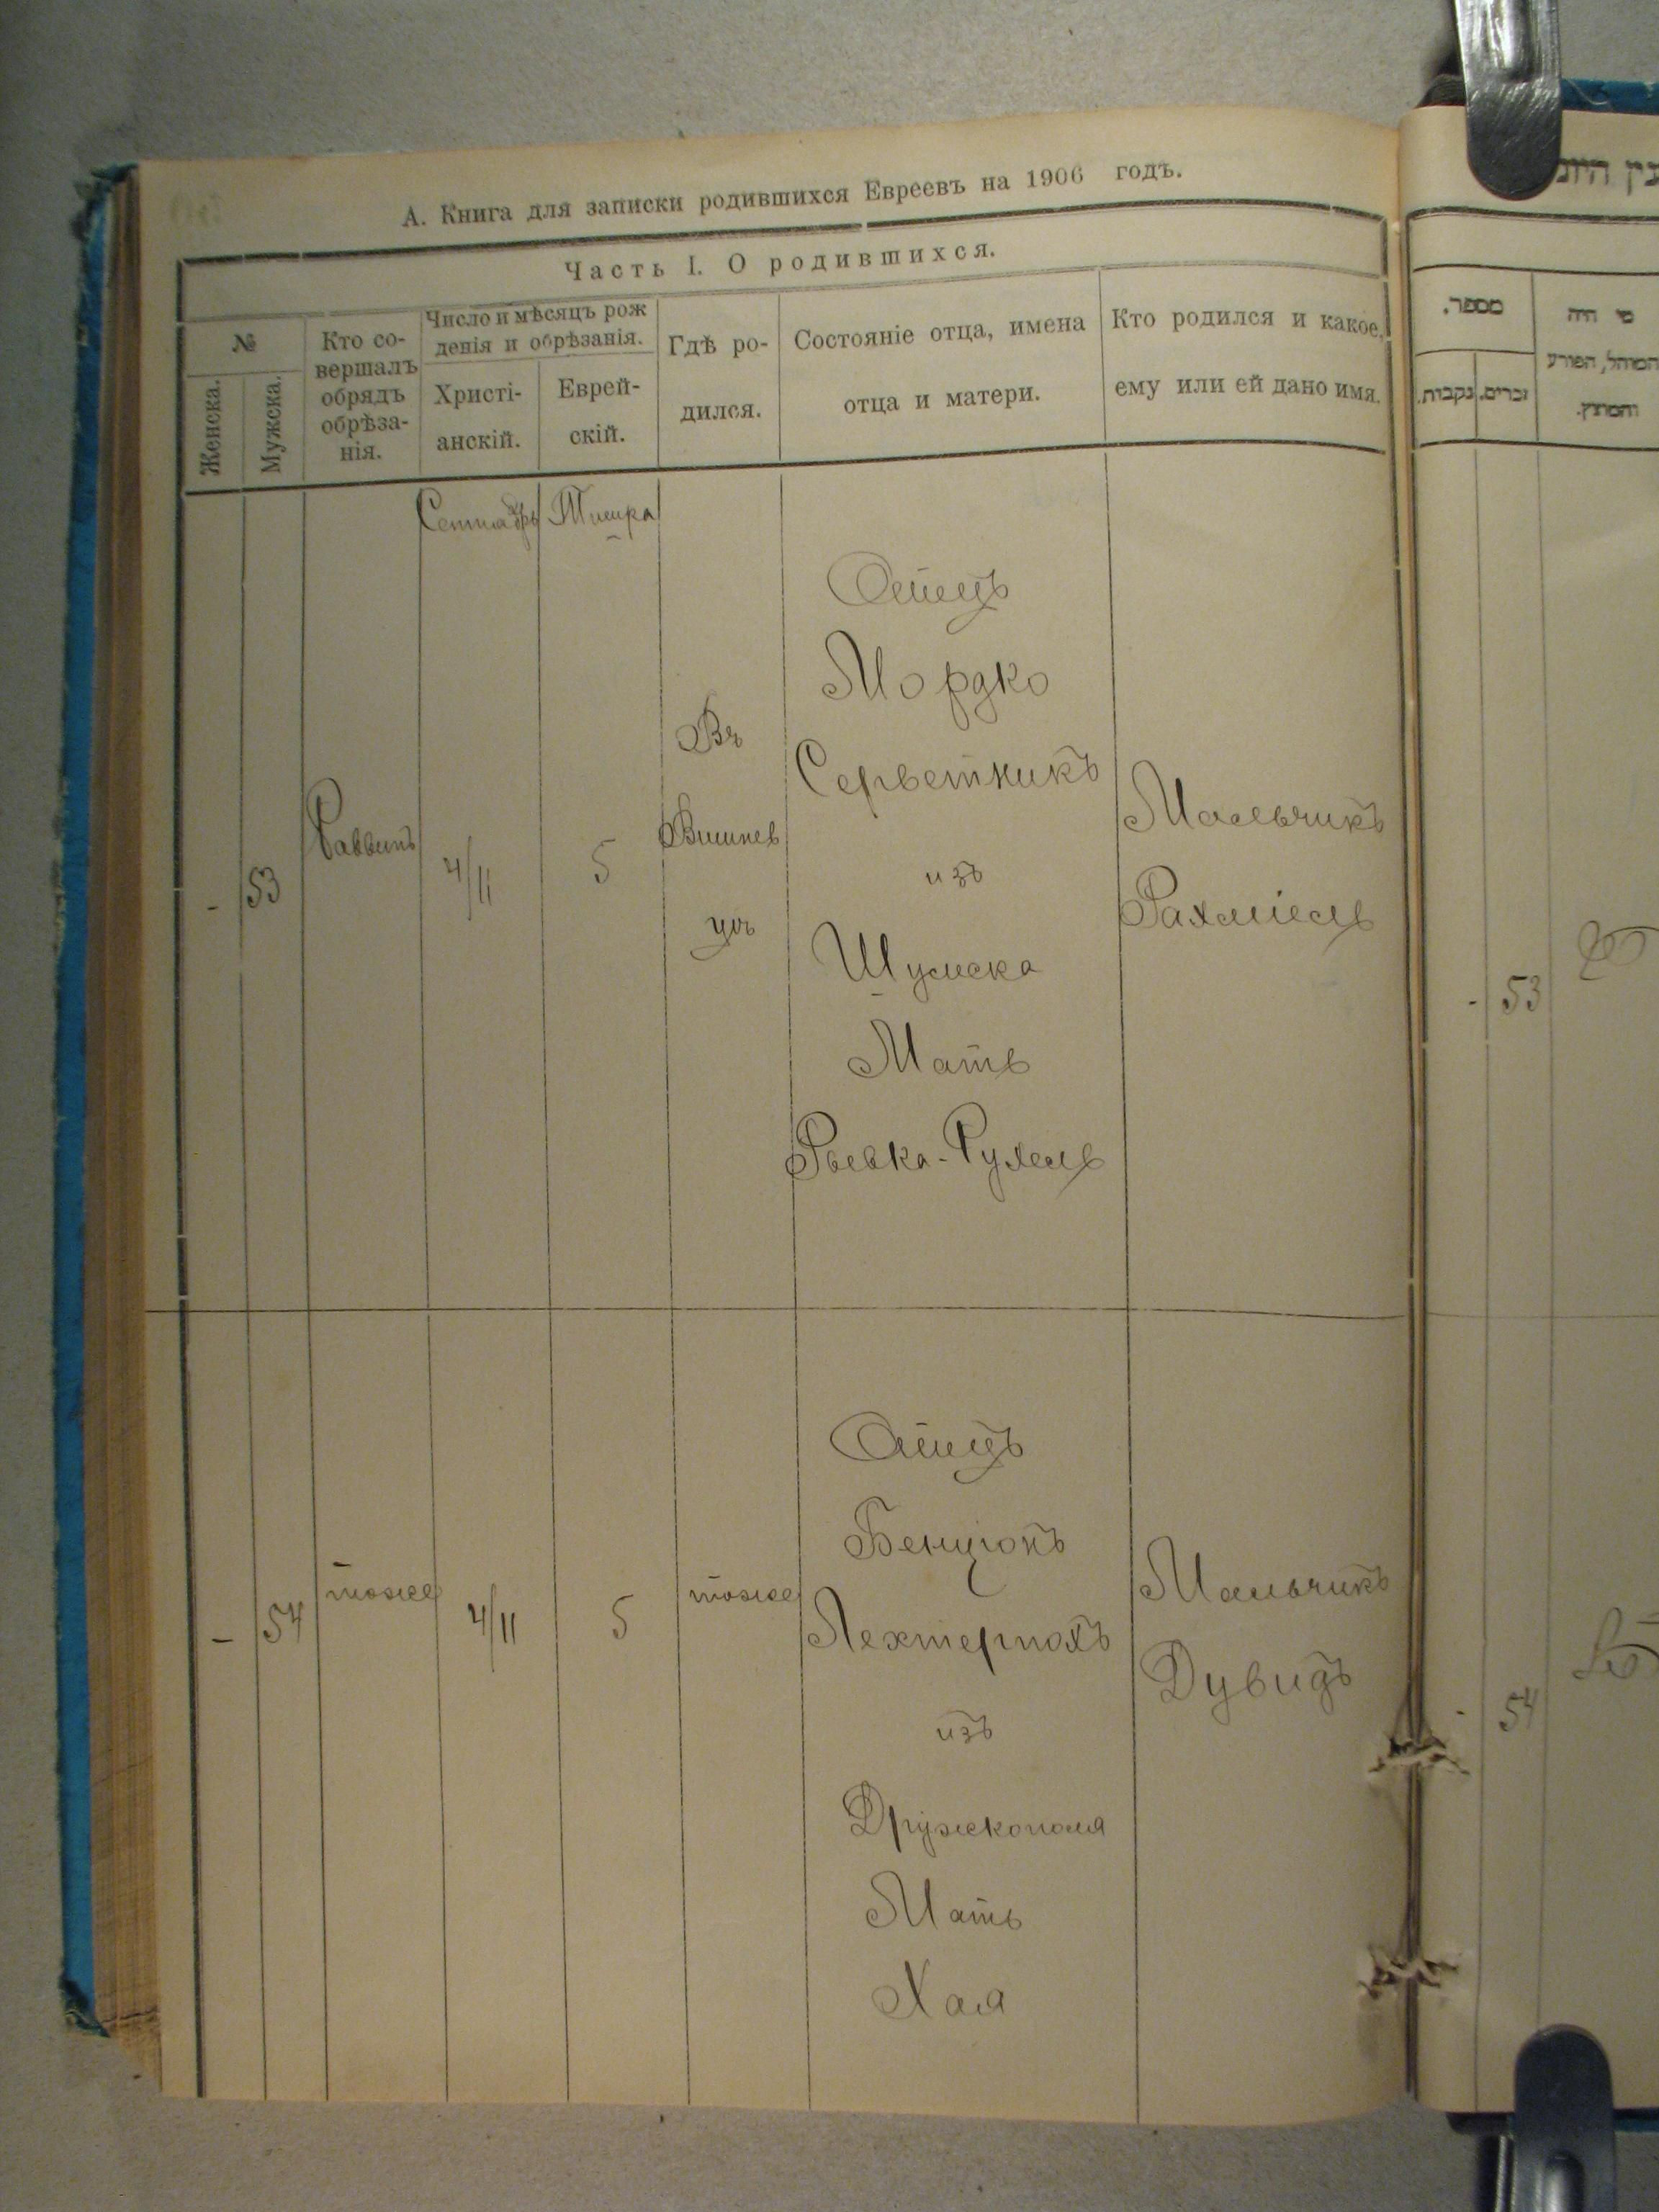 А. Книга для записки родившихся Евреевъ на 1906 годъ.
Часть I. О родившихся.
№
Женска.
Мужска.
Кто со-
вершалъ
обрядъ
обрѣза-
нія.
Число и мѣсяцъ рож
денія и обрѣзанія.
Христі-
анскій.
Еврей-
скій.
Гдѣ ро-
дился.
Состояніе отца, имена
отца и матери.
Кто родился и какое,
ему или ей дано имя.
Сентябрь
Тишра
-
53
Раввинъ
4/11
5
Въ
Вишнев
цѣ
Отецъ
Мордко
Серветникъ
изъ
Шумска
Мать
Рывка-Рухель
Мальчикъ
Рахміель
-
54
тоже
4/11
5
тоже
Отецъ
Бенціонъ
Лехтермахъ
изъ
Дружкополя
Мать
Хая
Мальчикъ
Дувидъ
מספר.
נקבות.
זכרים.
מי היה
המוהל, הפורע
והמוצץ.
-
53
-
54